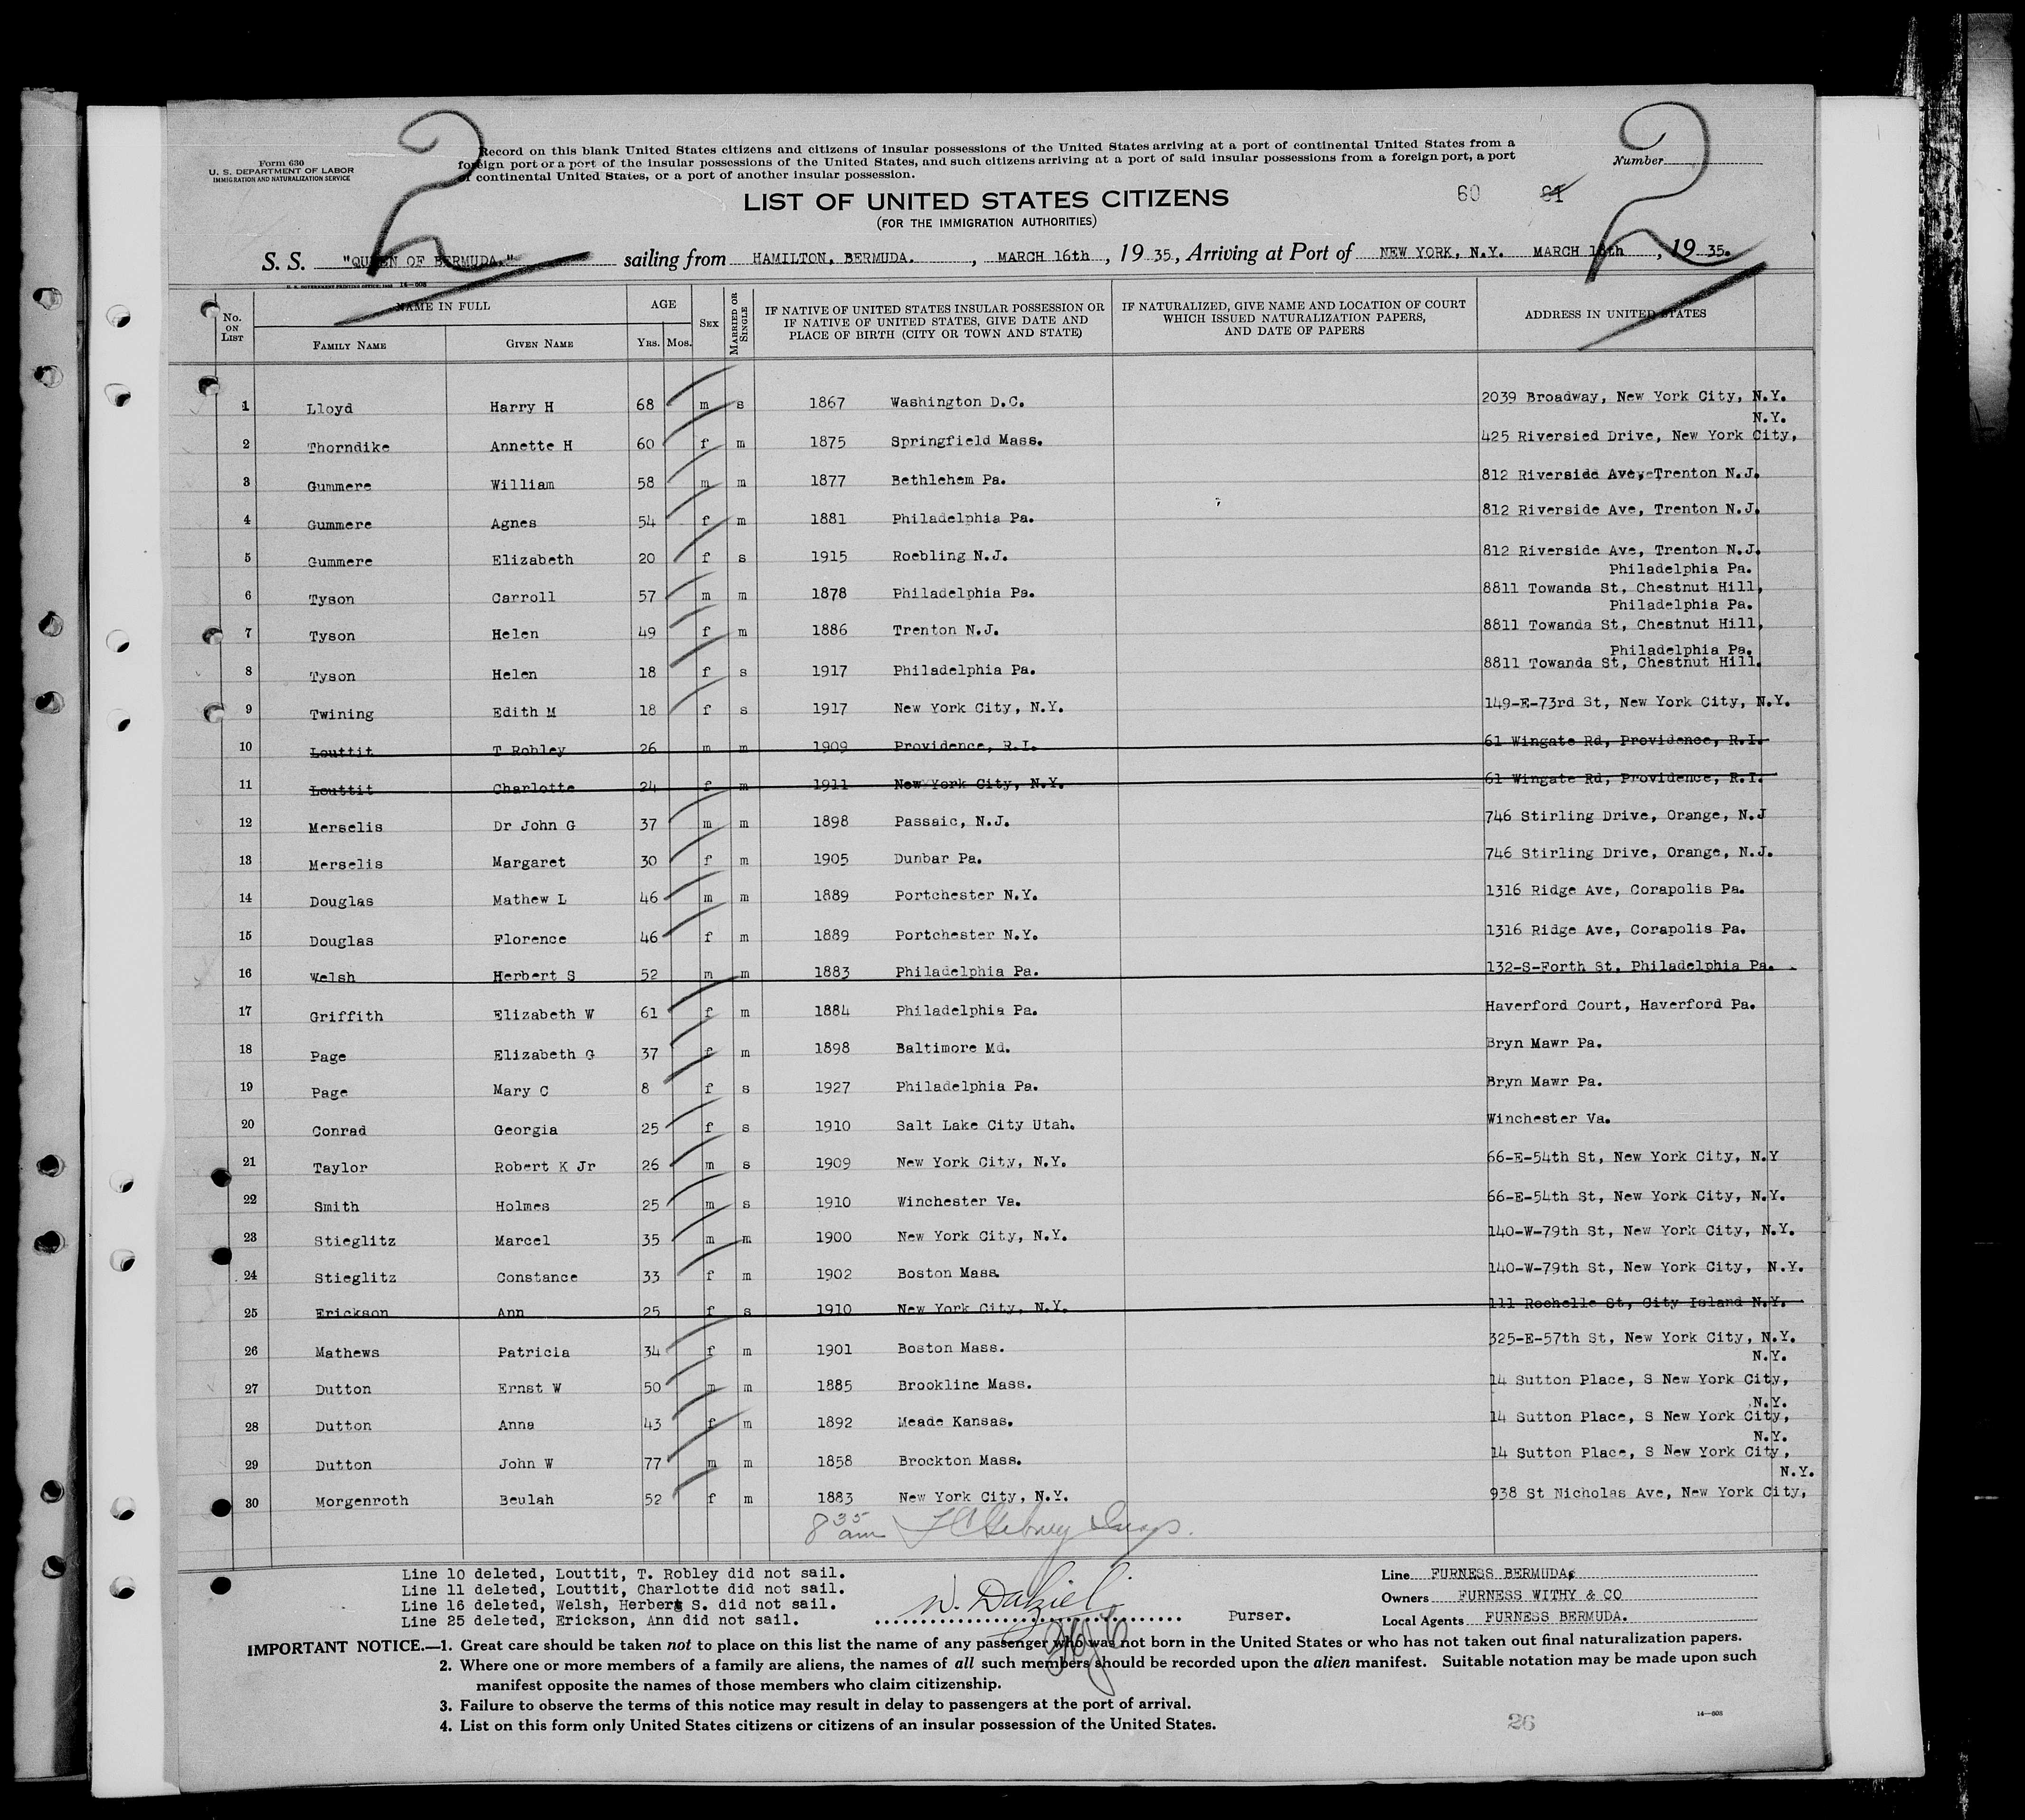 2 2
Form 630
U. S. DEPARTMENT OF LABOR
IMMIGRATION AND NATURALIZATION SERVICE
Record on this blank United States citizens and citizens of insular possessions of the United States arriving at a port of continental United States from a
foreign port or a port of the insular possessions of the United States, and such citizens arriving at a port of said insular possessions from a foreign port, a port
of continental United States, or a port of another insular possession.
Number
LIST OF UNITED STATES CITIZENS
(FOR THE IMMIGRATION AUTHORITIES)
60 61
S. S. "QUEEN OF BERMUDA." sailing from HAMILTON, BERMUDA. , MARCH 16th , 19 35, Arriving at Port of NEW YORK, N.Y. MARCH 18th , 19 35.
U. S. GOVERNMENT PRINTING OFFICE 14—608
No. ON LIST NAME IN FULL AGE SEX MARRIED OR SINGLE IF NATIVE OF UNITED STATES INSULAR POSSESSION OR IF NATIVE OF UNITED STATES, GIVE DATE AND PLACE OF BIRTH (CITY OR TOWN AND STATE) IF NATURALIZED, GIVE NAME AND LOCATION OF COURT WHICH ISSUED NATURALIZATION PAPERS, AND DATE OF PAPERS ADDRESS IN UNITED STATES
FAMILY NAME GIVEN NAME YRS. MOS.
1 Lloyd Harry H 68 m s 1867 Washington D.C. 2039 Broadway, New York City, N.Y.
N.Y.
2 Thorndike Annette H 60 f m 1875 Springfield Mass. 425 Riversied Drive, New York City,
3 Gummere William 58 m m 1877 Bethlehem Pa. 812 Riverside Ave, Trenton N.J.
4 Gummere Agnes 54 f m 1881 Philadelphia Pa. 812 Riverside Ave, Trenton N.J.
5 Gummere Elizabeth 20 f s 1915 Roebling N.J. 812 Riverside Ave, Trenton N.J.
Philadelphia Pa.
6 Tyson Carroll 57 m m 1878 Philadelphia Pa. 8811 Towanda St, Chestnut Hill,
Philadelphia Pa.
7 Tyson Helen 49 f m 1886 Trenton N.J. 8811 Towanda St, Chestnut Hill,
Philadelphia Pa.
8 Tyson Helen 18 f s 1917 Philadelphia Pa. 8811 Towanda St, Chestnut Hill.
9 Twining Edith M 18 f s 1917 New York City, N.Y. 149-E-73rd St, New York City, N.Y.
10 Louttit T Robley 26 m m 1909 Providence, R.I. 61 Wingate Rd, Providence, R.I.
11 Louttit Charlotte 24 f m 1911 New York City, N.Y. 61 Wingate Rd, Providence, R.I.
12 Merselis Dr John G 37 m m 1898 Passaic, N.J. 746 Stirling Drive, Orange, N.J
13 Merselis Margaret 30 f m 1905 Dunbar Pa. 746 Stirling Drive, Orange, N.J.
14 Douglas Mathew L 46 m m 1889 Portchester N.Y. 1316 Ridge Ave, Corapolis Pa.
15 Douglas Florence 46 f m 1889 Portchester N.Y. 1316 Ridge Ave, Corapolis Pa.
16 Welsh Herbert S 52 m m 1883 Philadelphia Pa. 132-S-Forth St. Philadelphia Pa.
17 Griffith Elizabeth W 61 f m 1884 Philadelphia Pa. Haverford Court, Haverford Pa.
18 Page Elizabeth G 37 f m 1898 Baltimore Md. Bryn Mawr Pa.
19 Page Mary C 8 f s 1927 Philadelphia Pa. Bryn Mawr Pa.
20 Conrad Georgia 25 f s 1910 Salt Lake City Utah. Winchester Va.
21 Taylor Robert K Jr 26 m s 1909 New York City, N.Y. 66-E-54th St, New York City, N.Y
22 Smith Holmes 25 m s 1910 Winchester Va. 66-E-54th St, New York City, N.Y.
23 Stieglitz Marcel 35 m m 1900 New York City, N.Y. 140-W-79th St, New York City, N.Y.
24 Stieglitz Constance 33 f m 1902 Boston Mass. 140-W-79th St, New York City, N.Y.
25 Erickson Ann 25 f s 1910 New York City, N.Y. 111 Rochelle St, City Island N.Y.
26 Mathews Patricia 34 f m 1901 Boston Mass. 325-E-57th St, New York City, N.Y.
N.Y.
27 Dutton Ernst W 50 m m 1885 Brookline Mass. 14 Sutton Place, S New York City,
N.Y.
28 Dutton Anna 43 f m 1892 Meade Kansas. 14 Sutton Place, S New York City,
N.Y.
29 Dutton John W 77 m m 1858 Brockton Mass. 14 Sutton Place, S New York City,
N.Y.
30 Morgenroth Beulah 52 f m 1883 New York City, N.Y. 938 St Nicholas Ave, New York City,
8 35 am
Line 10 deleted, Louttit, T. Robley did not sail.
Line 11 deleted, Louttit, Charlotte did not sail.
Line 16 deleted, Welsh, Herbert S. did not sail.
Line 25 deleted, Erickson, Ann did not sail.
W. Dalziel Purser.
Line FURNESS BERMUDA.
Owners FURNESS WITHY & CO
Local Agents FURNESS BERMUDA.
IMPORTANT NOTICE.—1. Great care should be taken not to place on this list the name of any passenger who was not born in the United States or who has not taken out final naturalization papers.
2. Where one or more members of a family are aliens, the names of all such members should be recorded upon the alien manifest. Suitable notation may be made upon such
manifest opposite the names of those members who claim citizenship.
3. Failure to observe the terms of this notice may result in delay to passengers at the port of arrival.
4. List on this form only United States citizens or citizens of an insular possession of the United States.
26
14—608